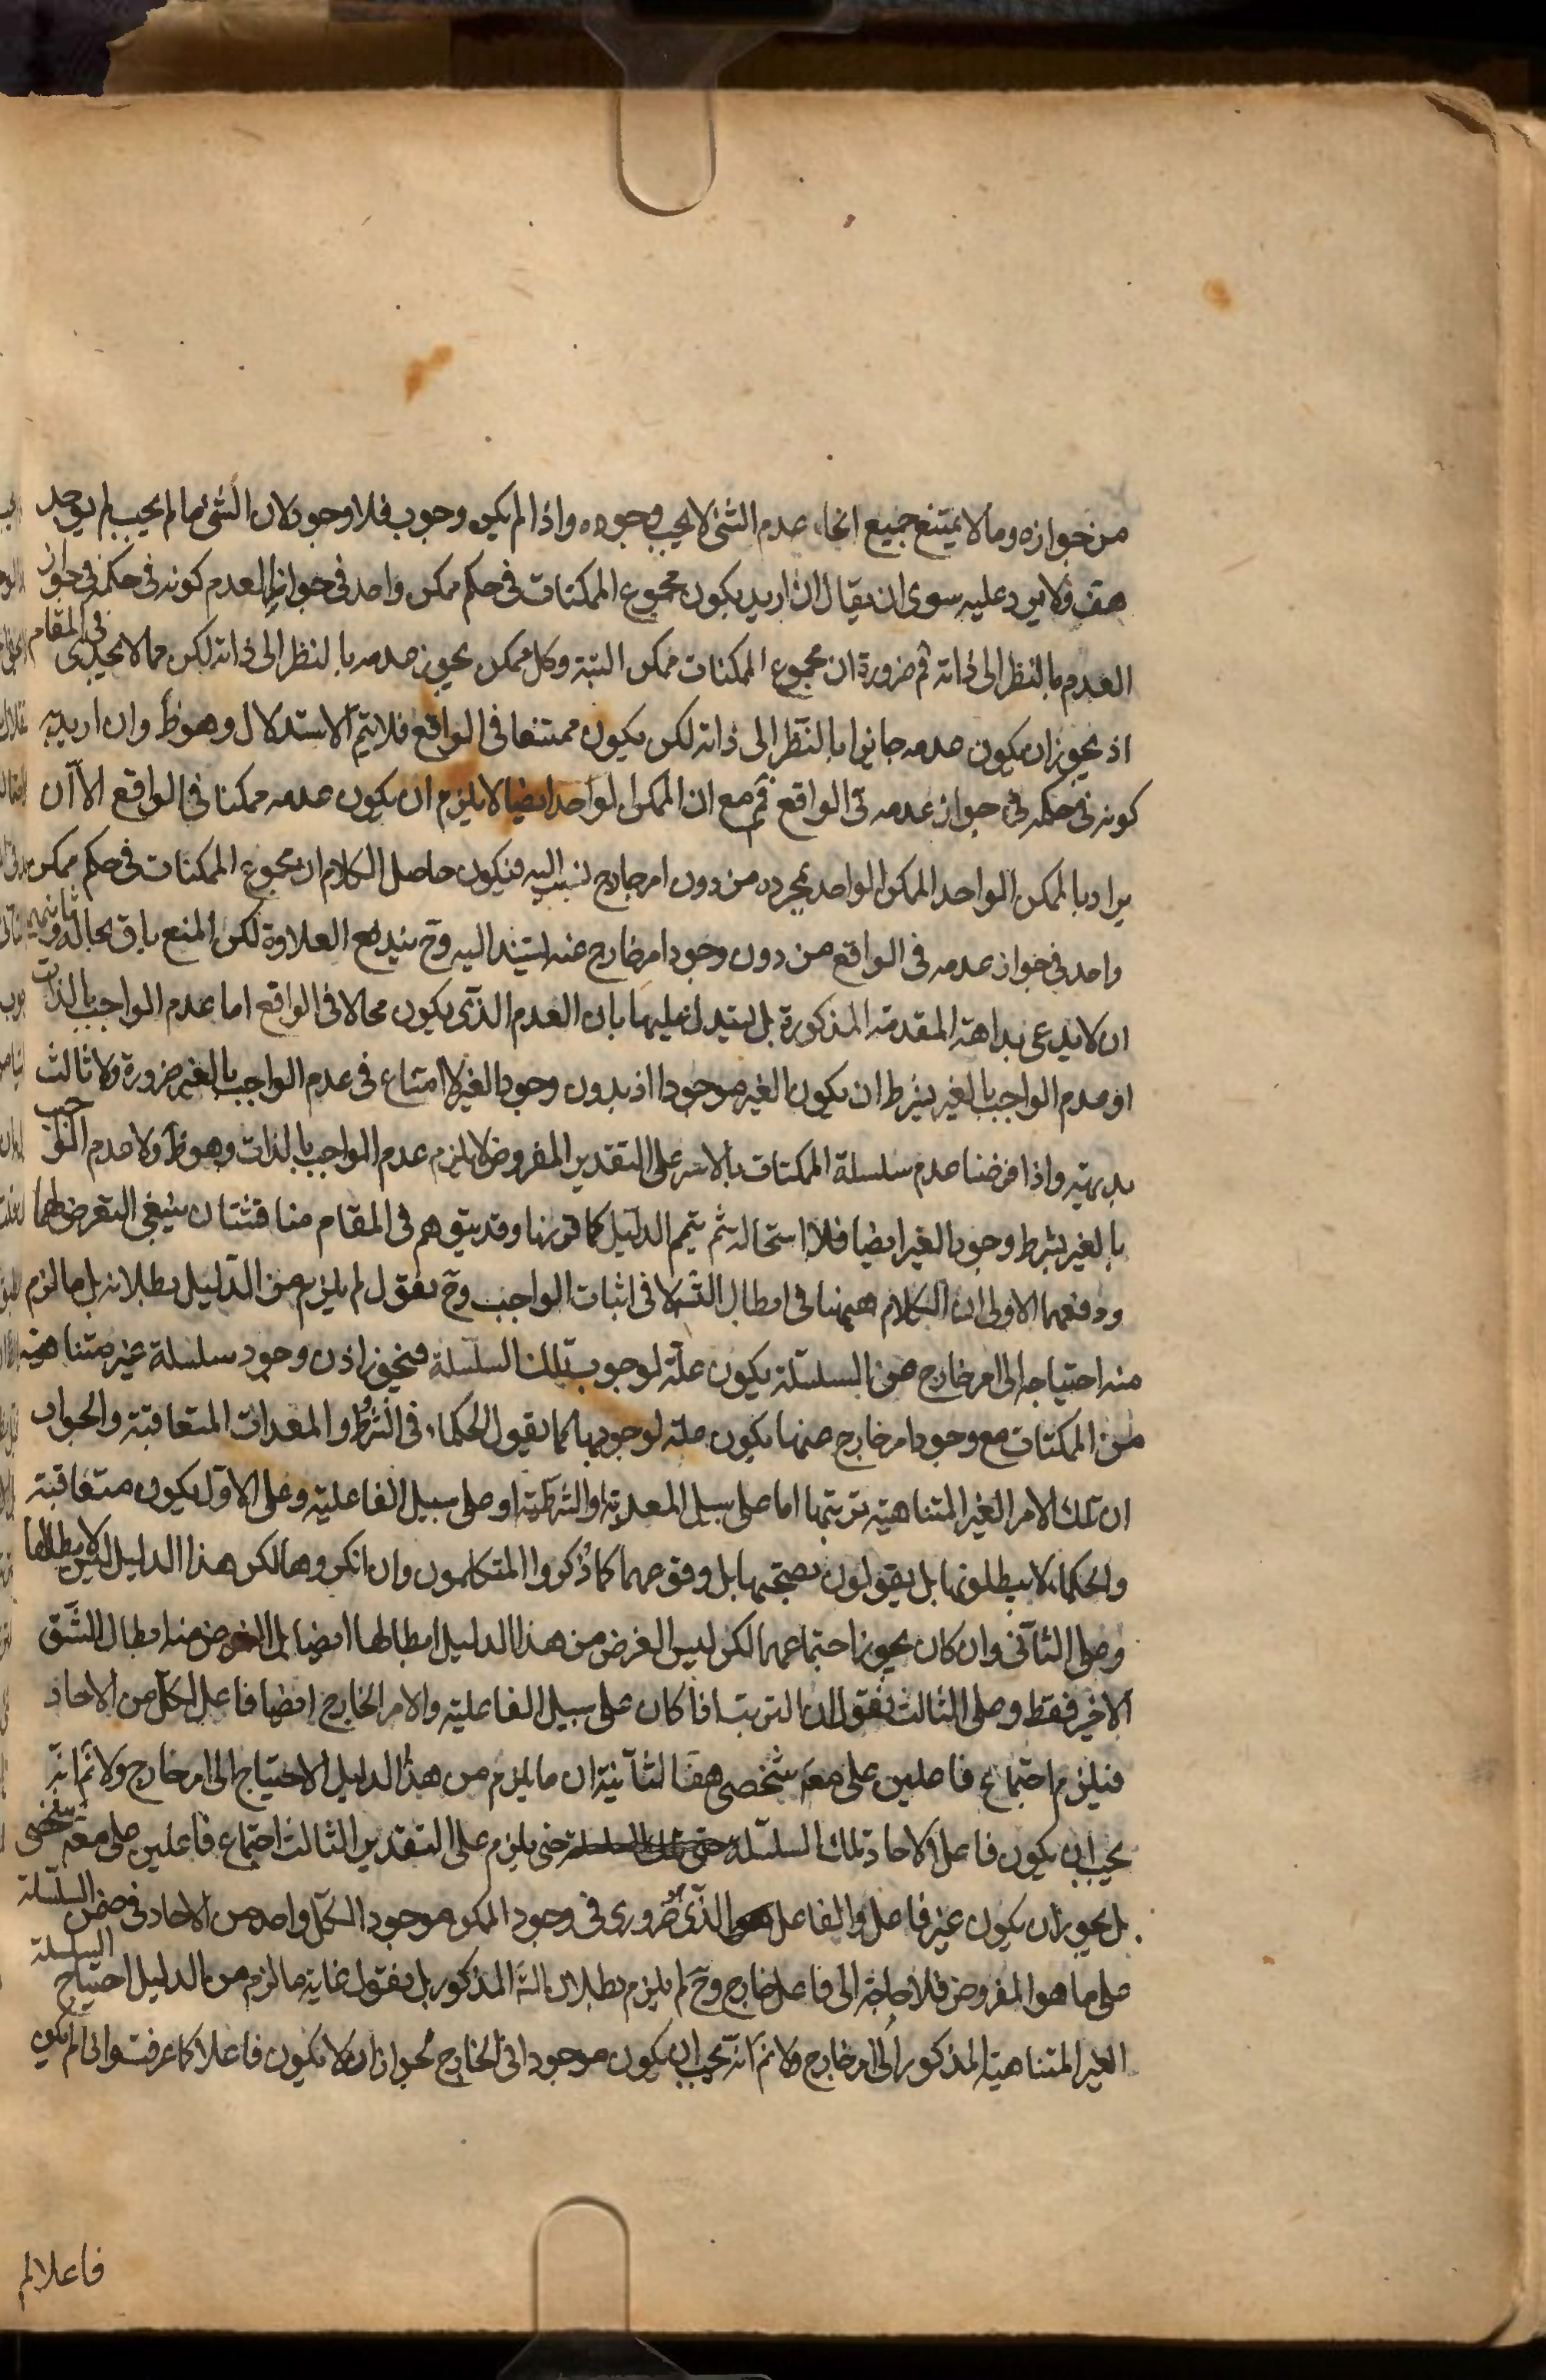 من جوازه وما لا يمتنع جميع انحاء عدم الشئ لا يجب وجوده واذا لم يكن وجوب فلا وجود لان الشئ ما لم يجب لم يوجد
هف ولا يرد عليه سوى ان يقال ان اريد بكون مجموع الممكنات في حكم ممكن واحد في جواز العدم كونه في حكمه في جواز
العدم بالنظر الى ذاته فم ضرورة ان مجموع الممكنات ممكن البتة وكل ممكن يجوز عدمه بالنظر الى ذاته لكن مما لا يجدى في المقام
اذ يجوز ان يكون عدمه جائزا بالنظر الى ذاته لكن يكون ممتنعا في الواقع فلا يتم الاستدلال وهو ظ وان اريد به
كونه في حكمه في جواز عدمه في الواقع فم مع ان الممكن الواحد ايضا لا يلزم ان يكون عدمه ممكنا في الواقع الا ان
يراد بالممكن الواحد الممكن الواحد بمجرده من دون امر خارج ينسب اليه فيكون حاصل الكلام ان مجموع الممكنات في حكم ممكن
واحد في جواز عدمه في الواقع من دون وجود امر خارج عنه استند اليه وح يندفع العلاوة لكن المنع باق بحاله
ان لا يدعى بداهة المقدمة المذكورة بل يستدل عليها بان العدم الذى يكون محالا في الواقع اما عدم الواجب بالذات
او عدم الواجب بالغير بشرط ان يكون الغير موجودا اذ بدون وجود الغير لا امتناع في عدم الواجب بالغير ضرورة ولا ثالث
بديهة واذا فرضنا عدم سلسلة الممكنات بالاسر على التقدير المفروض لا يلزم عدم الواجب بالذات وهو ظ ولا عدم الواجب
بالغير بشرط وجود الغير ايضا فلا استحالة ثم يتم الدليل كما قررنا وقد يتوهم في المقام مناقشتان ينبغى التعرض لهما
ودفعهما الاولى ان الكلام ههنا في ابطال التس لا في اثبات الواجب وح نقول لم يلزم من الدليل بطلانه بل ما لزم
منه احتياجه الى امر خارج من السلسلة يكون علة لوجوب تلك السلسلة فيجوز اذن وجود سلسلة غير متناهية
من الممكنات مع وجود امر خارج عنها يكون علة لوجودها كما يقول الحكماء في الشروط والمعدات المتعاقبة والجواب
ان تلك الامر الغير المتناهية ترتبها اما على سبيل المعدية او الشرطية او على سبيل الفاعلية وعلى الاول يكون متعاقبة
والحكماء لا يبطلونها بل يقولون بصحتها بل وقوعها كما ذكروا المتكلمون وان انكروها لكن هذا الدليل ليس لابطالها
وعلى الثانى وان كان يجوز اجتماعها لكن ليس الغرض من هذا الدليل ابطالها ايضا بل الغرض منه ابطال الشق
الاخير فقط وعلى الثالث نقول ان الترتب اذا كان على سبيل الفاعلية والامر الخارج ايضا فاعل لكل من الاحاد
فيلزم اجتماع فاعلين على مع شخصى هف الثانية ان ما يلزم من هذا الدليل الاحتياج الى امر خارج ولا نم انه
يجب ان يكون فاعل الاحاد تلك السلسلة حتى يلزم على التقدير الثالث اجتماع فاعلين على مع شخصى
بل يجوز ان يكون غير فاعل والفاعل الذى هو ضرورى في وجود الممكن موجود لكل واحد من الاحاد في ضمن السلسلة
على ما هو المفروض فلا حاجة الى فاعل خارج وح لم يلزم بطلان التس المذكور بل نقول غاية ما لزم من الدليل احتياج السلسلة
الغير المتناهية المذكور الى امر خارج ولا نم انه يجب ان يكون موجودا في الخارج لجواز ان لا يكون فاعلا كما عرفت واذا لم يكن
فاعلا لم